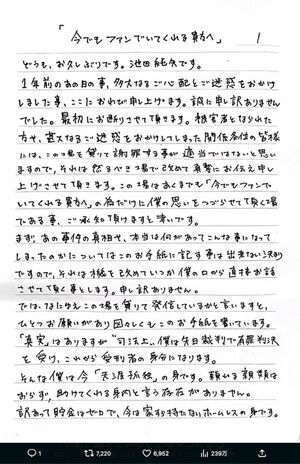 「今でもファンでいてくれる貴方へ」 1
どうも、お久しぶりです。池田純矢です。
1年前のあの日の事、多大なるご心配とご迷惑をおかけ
しました事、ここにおわび申し上げます。誠に申し訳ありません
でした。最初にお断りさせて頂きます。被害者となられた
方々、甚大なるご迷惑をおかけしてしまった関係各位の皆様
には、この場を借りて謝罪する事が適当ではないと思い
ますので、それは然るべき場で改めて真摯にお伝え申し
上げさせて頂きます。この場はあくまでも「今でもファンで
いてくれる貴方へ」の為だけに僕の思いをつづらせて頂く場
である事、ご承知頂けますと幸いです。
まず、あの事件の真相や、本当は何があってこんな事になって
しまったのかについてはこのお手紙に記す事は出来ない決まり
ですので、それは機を改めていつか僕の口から直接お話
させて頂く事とします。申し訳ありません。
では、なにゆえこの場を借りて発信しているかと言いますと、
ひとつお願いがあり図々しくもこのお手紙を書いています。
「真実」はありますが"司法上"、僕は先日裁判で有罪判決
を受け、これから受刑者の身分になります。
そんな僕は今「天涯孤独」の身です。頼れる親類は
おらず、助けてくれる身内と言う存在がありません。
訳あって貯金はゼロで、今は家すら持たないホームレスの身です。
1
7,220
6,952
239万